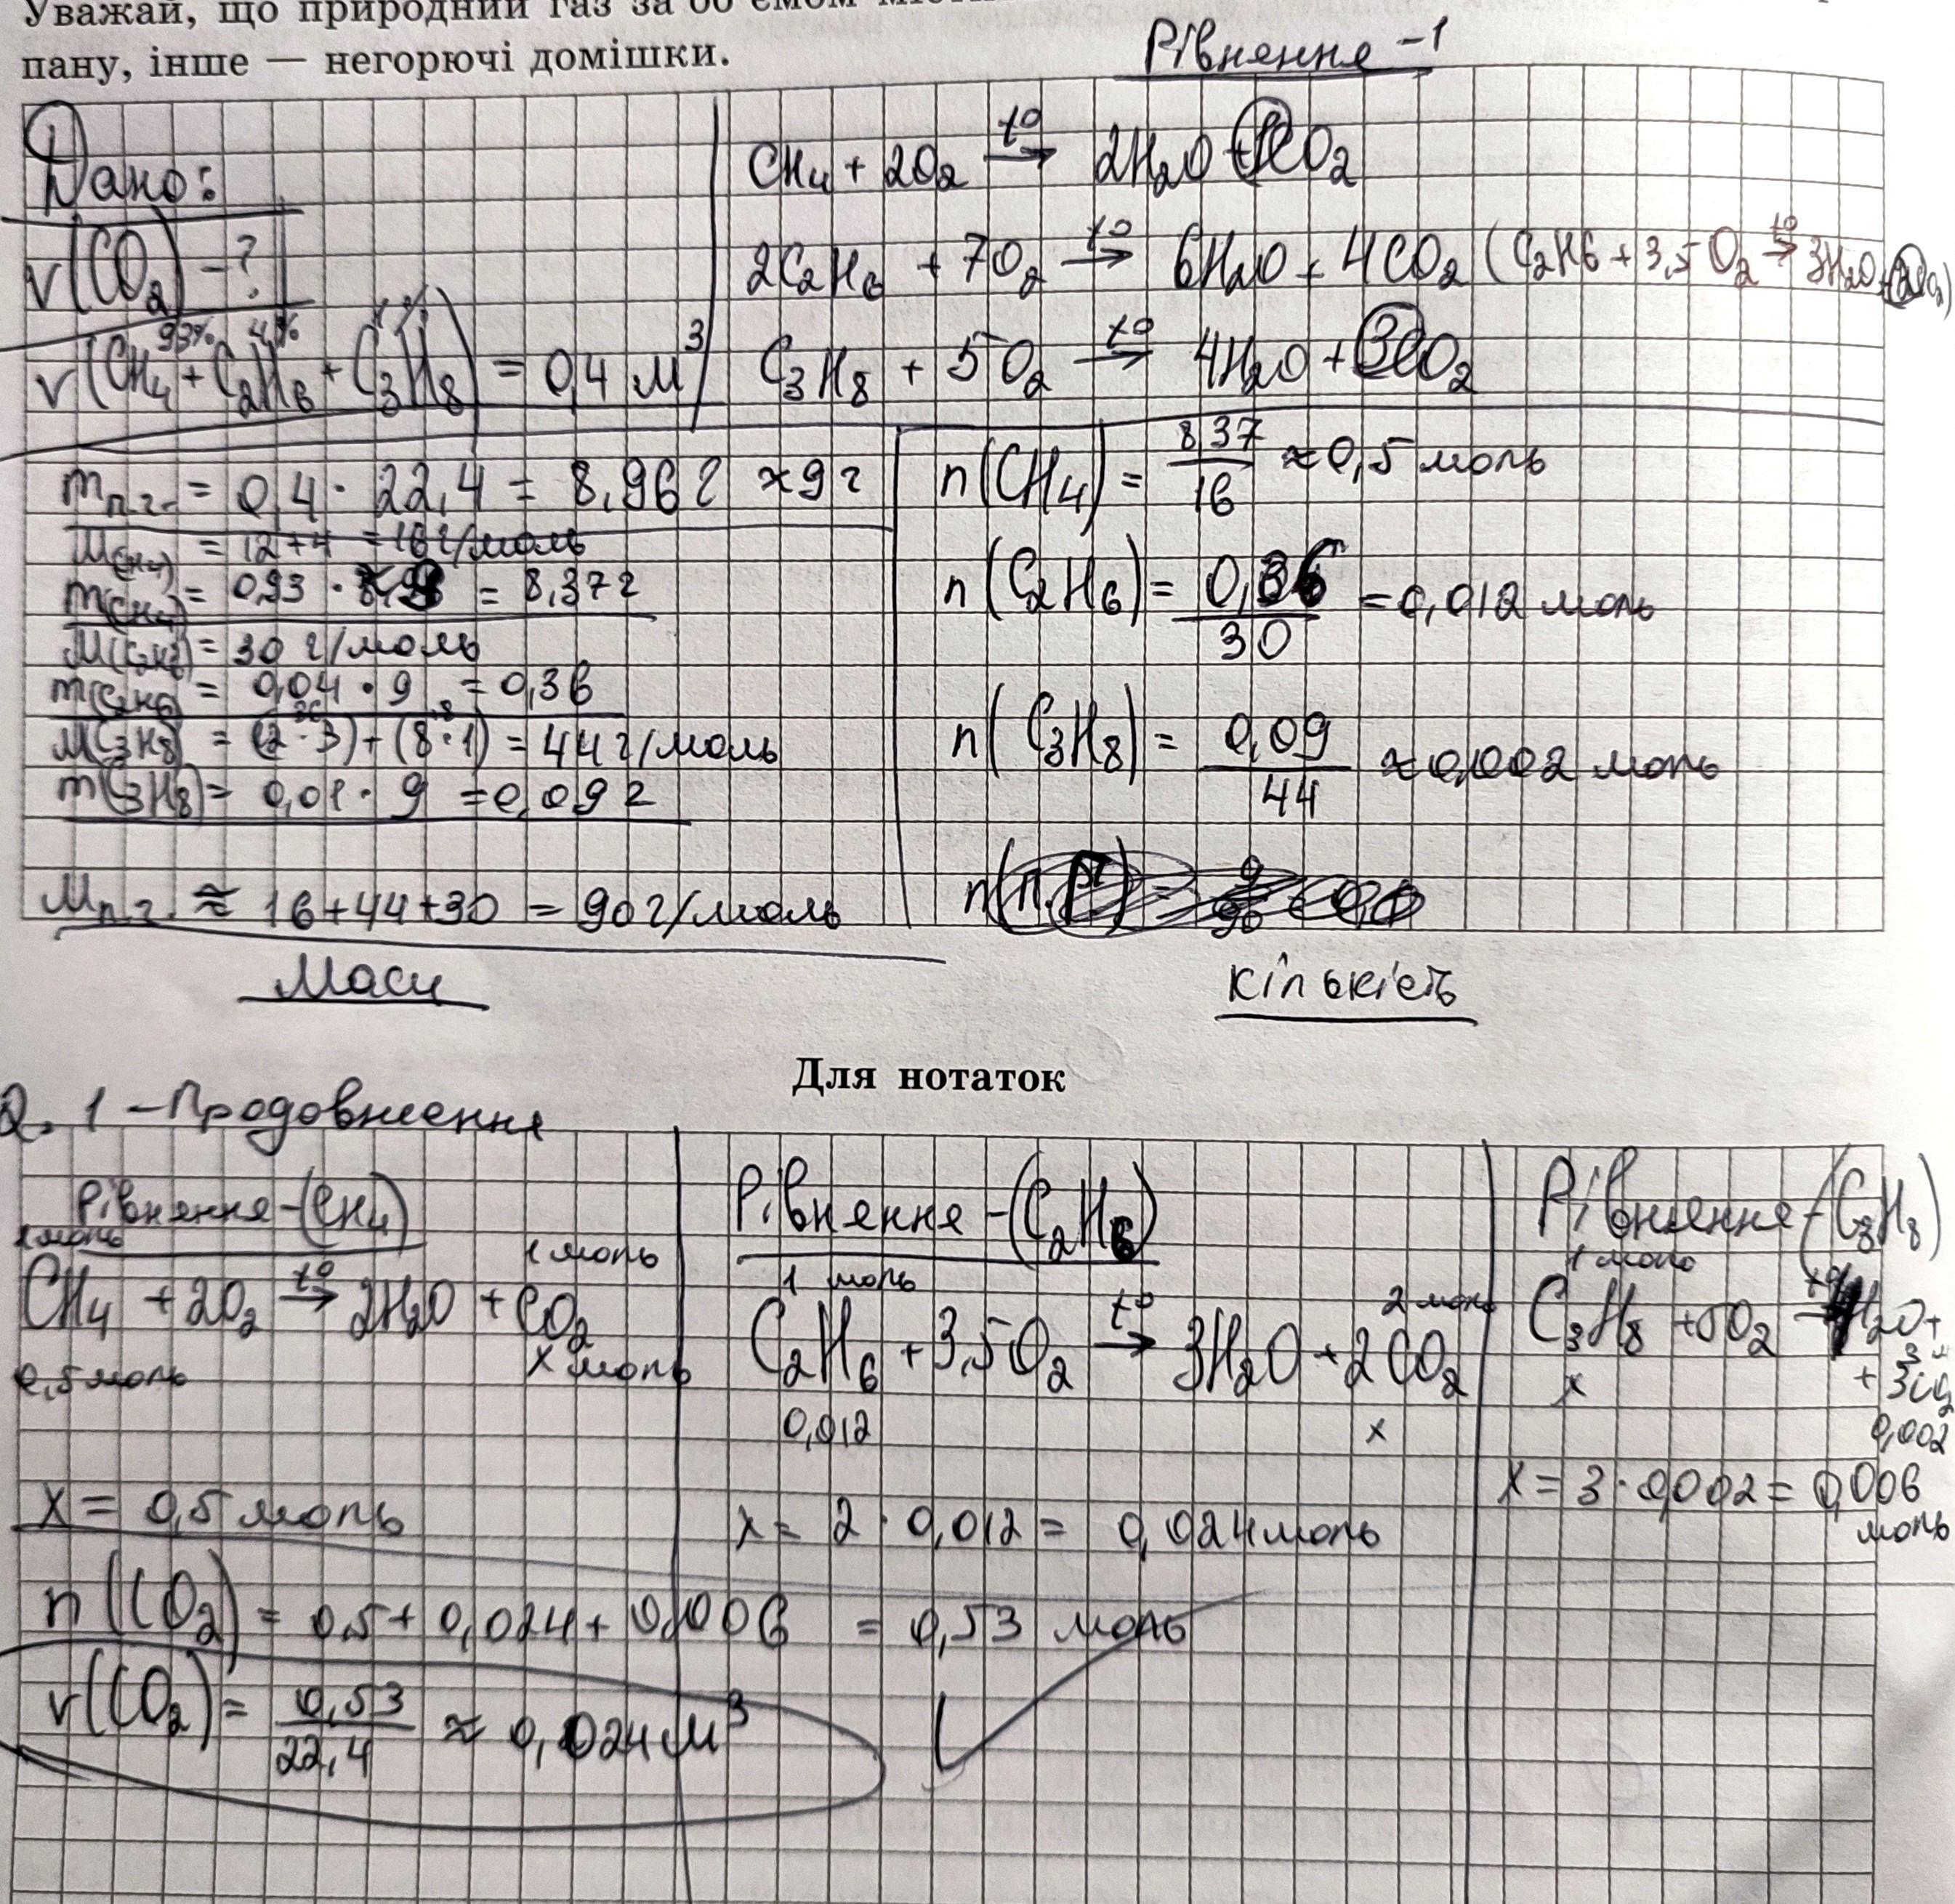 Уважай, що природний газ за об'ємом
пану, інше — негорючі домішки.
Рівняння -1
Дано:
V(CO₂) - ?
93% 4% 1%
V(CH₄ + C₂H₆ + C₃H₈) = 0,4 м³
CH₄ + 2O₂ →t° 2H₂O + 1CO₂
2C₂H₆ + 7O₂ →t° 6H₂O + 4CO₂ (C₂H₆ + 3,5O₂ →t° 3H₂O + 2CO₂)
C₃H₈ + 5O₂ →t° 4H₂O + 3CO₂
mп.г. = 0,4 · 22,4 = 8,96 г ≈ 9 г
M(CH₄) = 12+4 = 16 г/моль
m(CH₄) = 0,93 · 9 = 8,37 г
M(C₂H₆) = 30 г/моль
m(C₂H₆) = 0,04 · 9 = 0,36
36 8
M(C₃H₈) = (12·3)+(8·1) = 44 г/моль
m(C₃H₈) = 0,01 · 9 = 0,09 г
Mп.г. ≈ 16+44+30 = 90 г/моль
Маси
n(CH₄) = 8,37/16 ≈ 0,5 моль
n(C₂H₆) = 0,36/30 = 0,012 моль
n(C₃H₈) = 0,09/44 ≈ 0,002 моль
кількість
Для нотаток
2. 1 - Продовження
Рівняння -(CH₄)
1 моль 1 моль
CH₄ + 2O₂ →t° 2H₂O + CO₂
0,5 моль x моль
x = 0,5 моль
Рівняння -(C₂H₆)
1 моль 2 моль
C₂H₆ + 3,5O₂ →t° 3H₂O + 2CO₂
0,012 x
x = 2 · 0,012 = 0,024 моль
Рівняння -(C₃H₈)
1 моль
C₃H₈ + 5O₂ →t° 4H₂O +
3 м
+ 3CO₂
x 0,002
x = 3 · 0,002 = 0,006
моль
n(CO₂) = 0,5 + 0,024 + 0,006 = 0,53 моль
V(CO₂) = 0,53/22,4 ≈ 0,024 м³